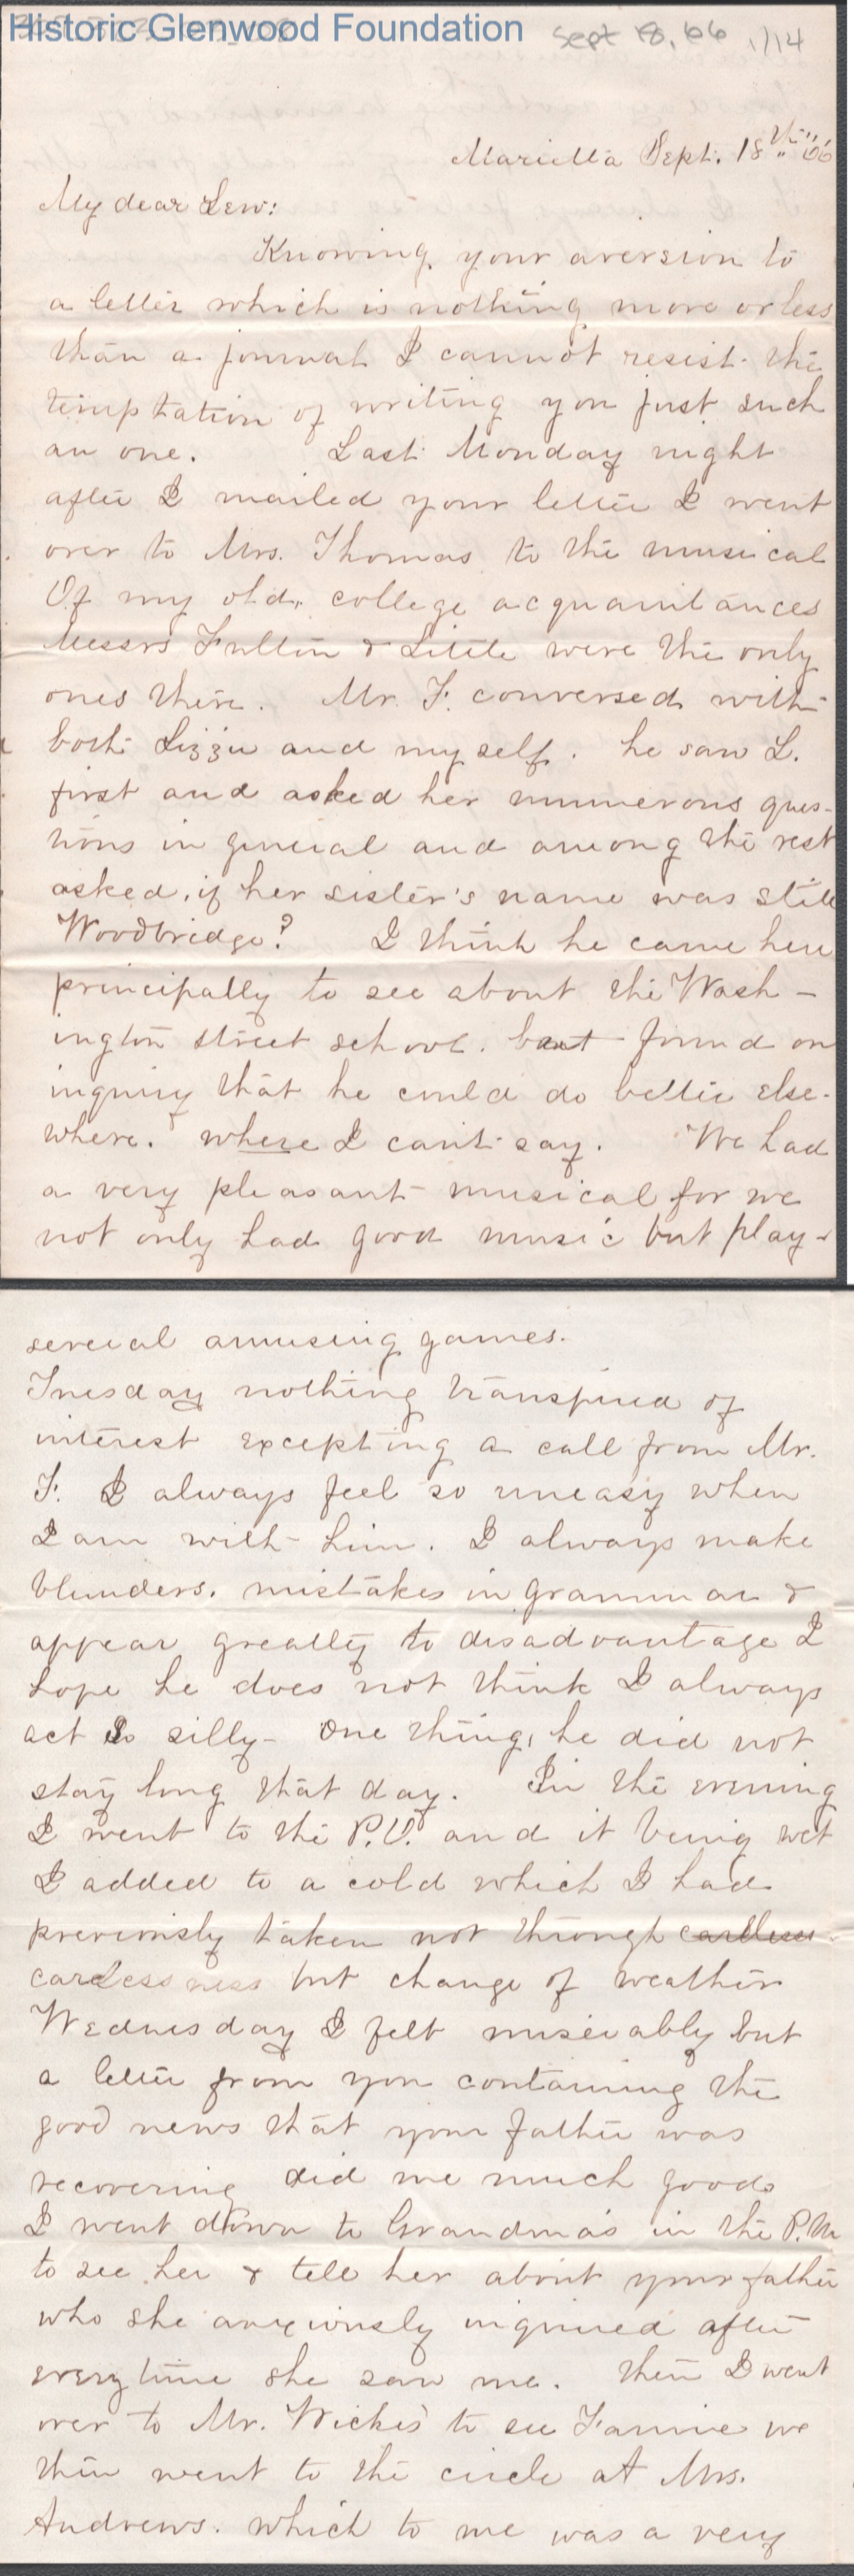 Historic Glenwood Foundation
Sept 18, 66 1/14
Marietta Sept. 18th "66
My dear Lew:
Knowing your aversion to
a letter which is nothing more or less
than a journal I cannot resist the
temptation of writing you just such
an one. Last Monday night
after I mailed your letter I went
over to Mrs. Thomas to the musical
Of my old, college acquaintances
Messrs Fulton & Little were the only
ones there. Mr. F. conversed with
both Lizzie and myself. he saw L.
first and asked her numerous ques-
tions in general and among the rest
asked, if her sister's name was still
Woodbridge? I think he came here
principally to see about the Wash-
ington street school. but found on
inquiry that he could do better else-
where. where I can't say. We had
a very pleasant musical for we
not only had good music but play-
several amusing games.
Tuesday nothing transpired of
interest excepting a call from Mr.
F. I always feel so uneasy when
I am with him. I always make
blunders. mistakes in grammar &
appear greatly to disadvantage I
hope he does not think I always
act so silly - one thing, he did not
stay long that day. In the evening
I went to the P.O. and it being wet
I added to a cold which I had
previously taken not through careless
carelessness but change of weather
Wednesday I felt miserably but
a letter from you containing the
good news that your father was
recovering did me much good
I went down to Grandma's in the P.M
to see her & tell her about your father
who she anxiously inquired after
everytime she saw me. then I went
over to Mr. Wickes to see Fannie we
then went to the circle at Mrs.
Andrews. which to me was a very